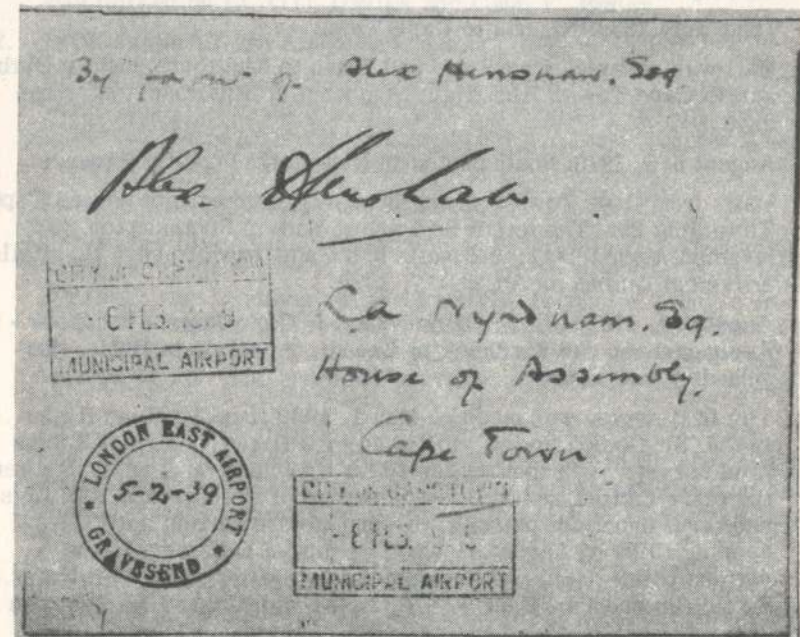 By favour of Alex Henshaw. Esq.
Alex. Henshaw
CITY OF CAPE TOWN
FEB
MUNICIPAL AIRPORT
Esq.
House of Assembly.
Cape Town.
LONDON EAST AIRPORT
5-2-39
* GRAVESEND *
CITY OF CAPE TOWN
FEB
MUNICIPAL AIRPORT